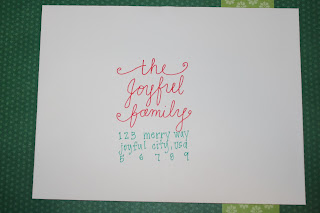 the
Joyful
family
123 merry way
joyful city, usd
5 6 7 8 9